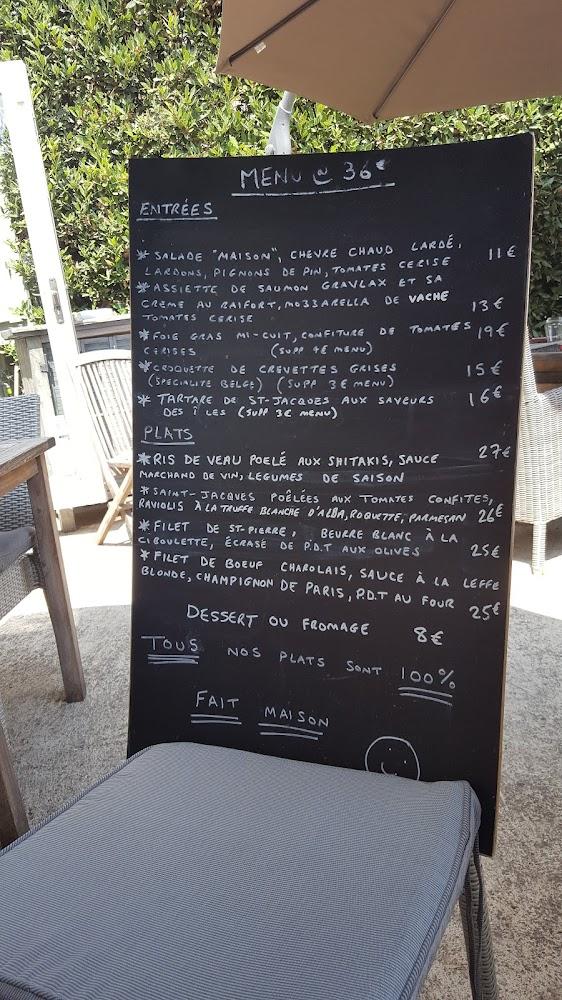 MENU @ 36€
ENTRÉES
* SALADE "MAISON", CHEVRE CHAUD LARDÉ, 11€
LARDONS, PIGNONS DE PIN, TOMATES CERISE
* ASSIETTE DE SAUMON GRAVLAX ET SA
CRÈME AU RAIFORT, MOZZARELLA DE VACHE 13€
TOMATES CERISE
* FOIE GRAS MI-CUIT, CONFITURE DE TOMATES 19€
CERISES (SUPP 4€ MENU)
* CROQUETTE DE CREVETTES GRISES 15€
(SPECIALITE BELGE) (SUPP 3€ MENU)
* TARTARE DE ST-JACQUES AUX SAVEURS 16€
DES ÎLES (SUPP 3€ MENU)
PLATS
* RIS DE VEAU POELÉ AUX SHITAKIS, SAUCE 27€
MARCHAND DE VIN, LEGUMES DE SAISON
* SAINT-JACQUES POÊLÉES AUX TOMATES CONFITES,
RAVIOLIS À LA TRUFFE BLANCHE D'ALBA, ROQUETTE, PARMESAN 26€
* FILET DE ST-PIERRE, BEURRE BLANC À LA
CIBOULETTE, ÉCRASÉ DE P.D.T AUX OLIVES 25€
* FILET DE BOEUF CHAROLAIS, SAUCE À LA LEFFE
BLONDE, CHAMPIGNON DE PARIS, P.D.T AU FOUR 25€
DESSERT OU FROMAGE 8€
TOUS NOS PLATS SONT 100%
FAIT MAISON